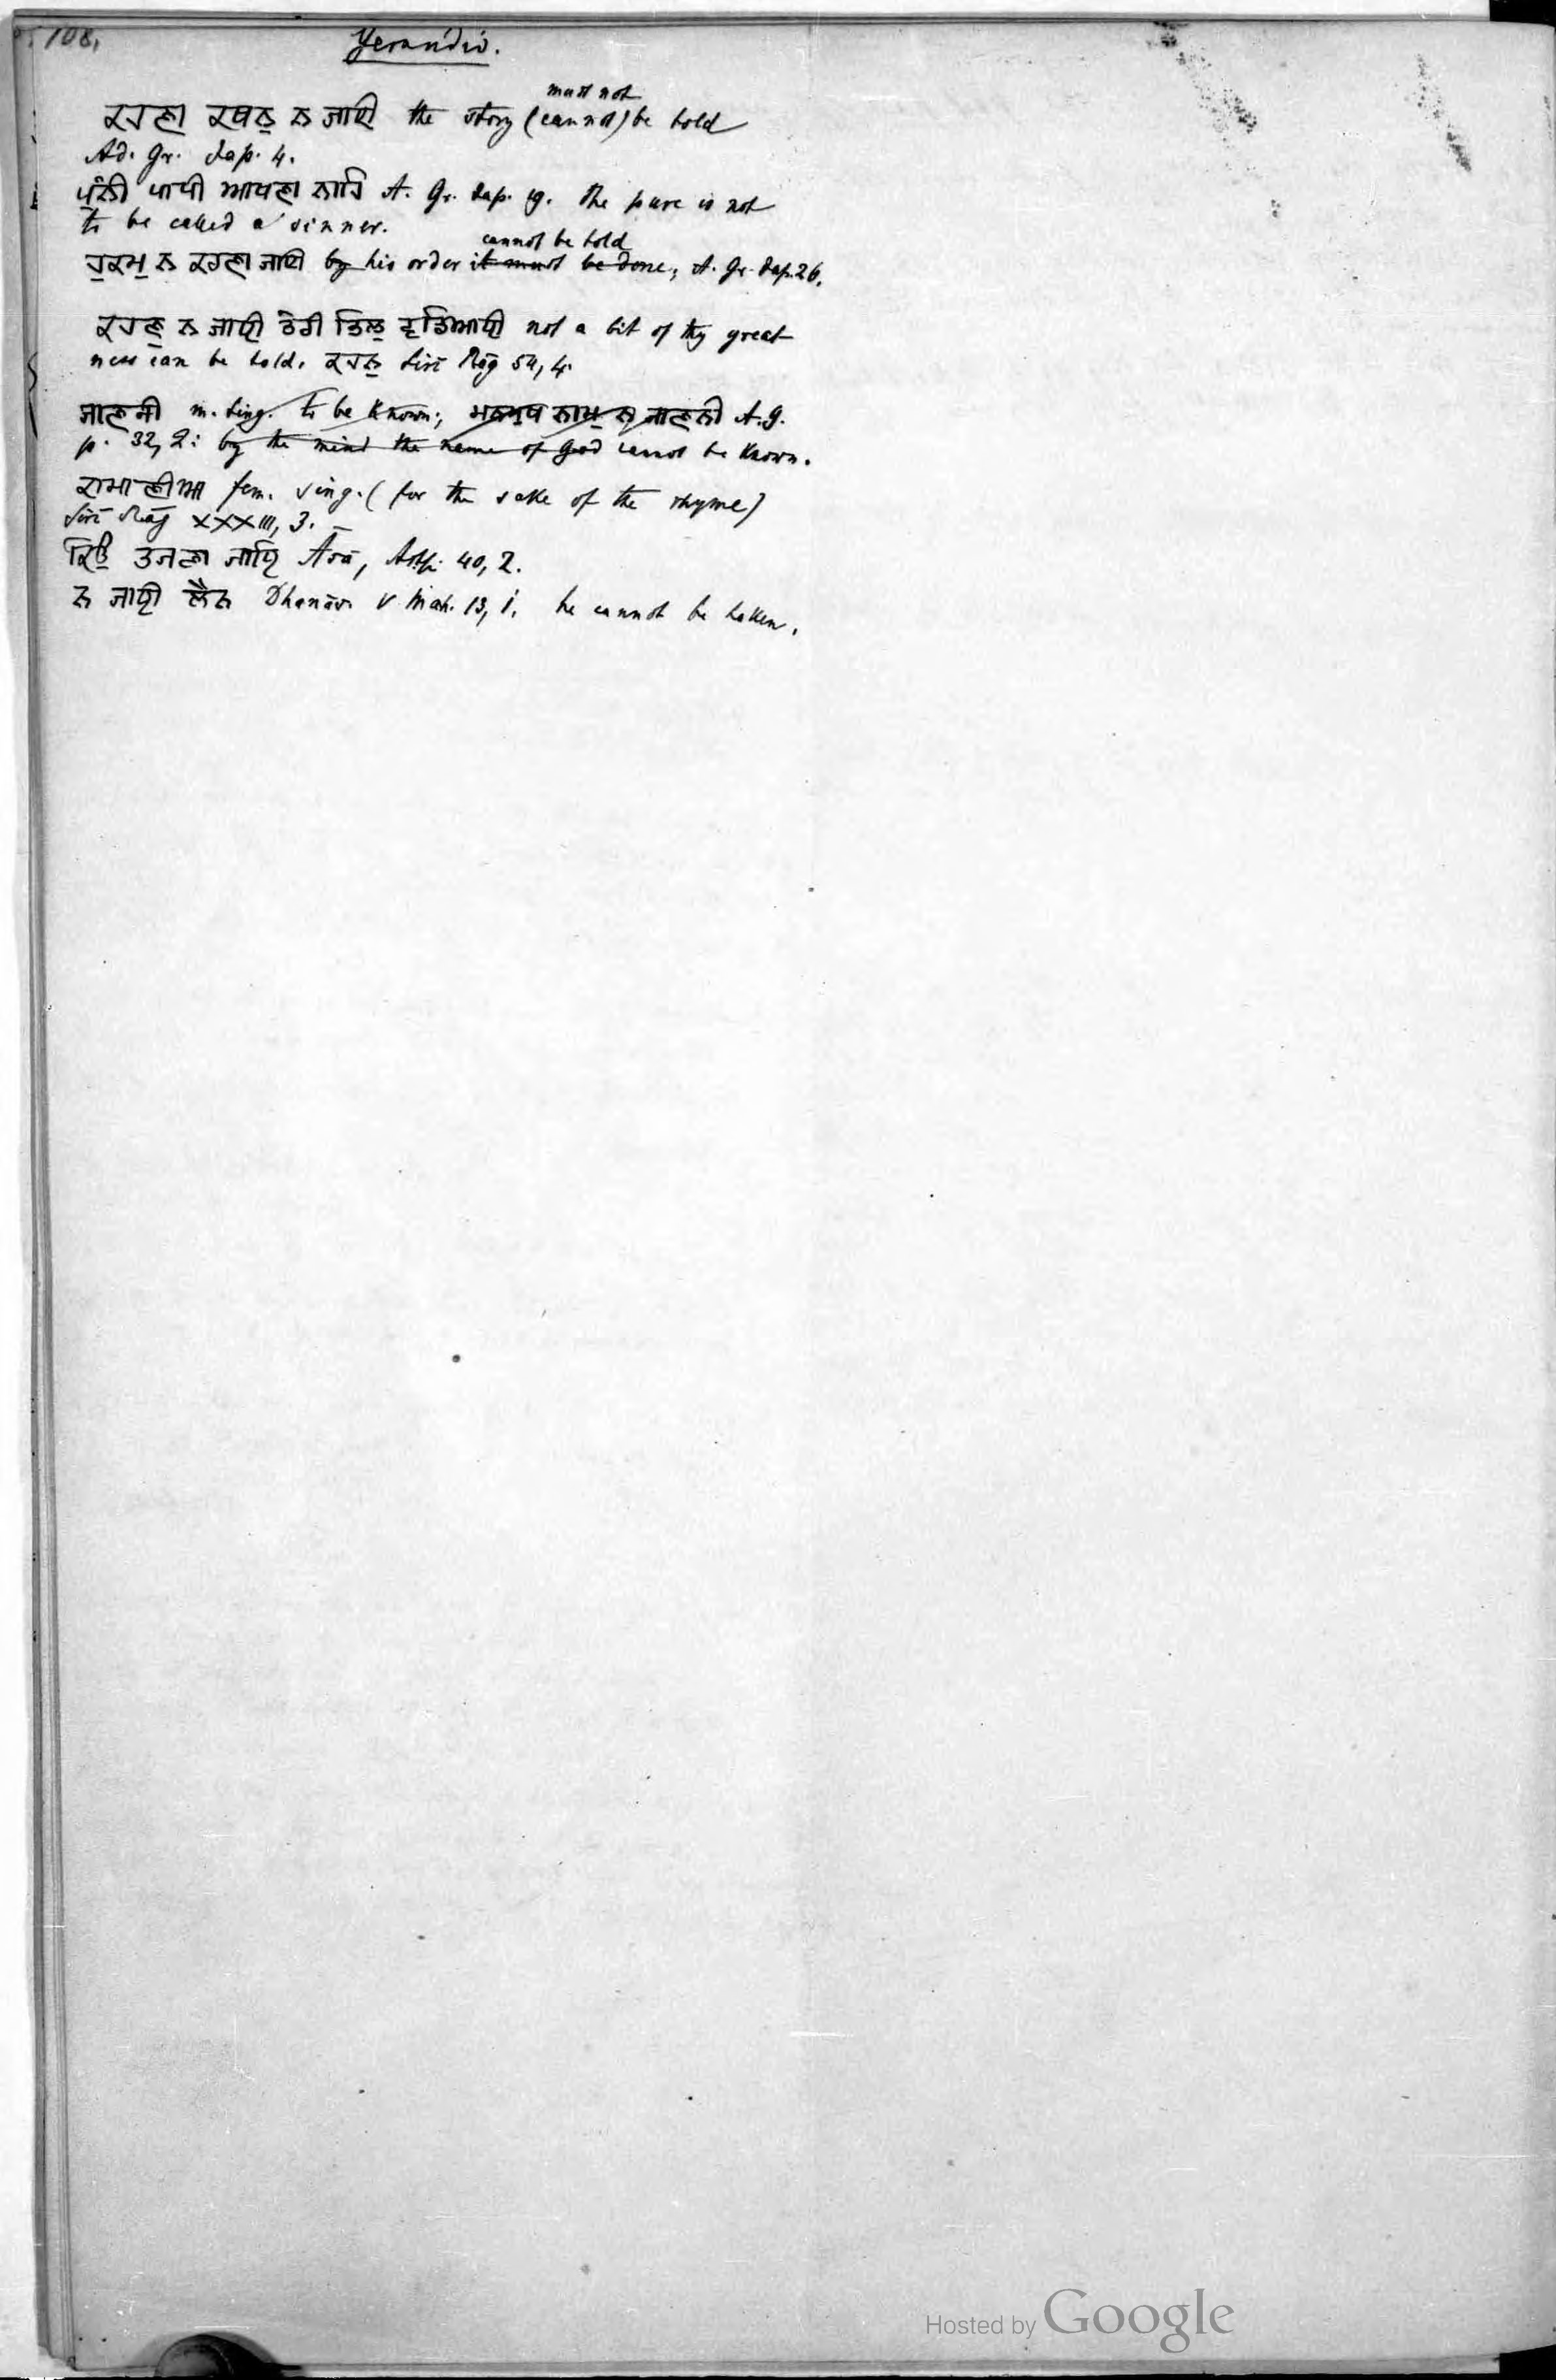 108.
Gerundio.
must not
ਕਹਣਾ ਕਥਨੁ ਨ ਜਾਈ the story (cannot) be told
Ad. Gr. Jap. 4.
ਪੁੰਨੀ ਪਾਪੀ ਆਖਣਾ ਨਾਹਿ A. Gr. Jap. 19. the pure is not
to be called a sinner.
cannot be told
ਹੁਕਮੁ ਨ ਕਹਣਾ ਜਾਈ by his order it must be done; A. Gr. Jap. 26.
ਕਹਣੁ ਨ ਜਾਈ ਤੇਰੀ ਤਿਲੁ ਵਡਿਆਈ not a bit of thy great-
ness can be told. ਕਹਨੁ Siri Rāg 54, 4.
ਜਾਣਨੀ m. sing. to be known; ਮਨਮੁਖ ਨਾਮੁ ਨ ਜਾਣਨੀ A. G.
p. 32, 2: by the mind the name of God cannot be known.
ਕਾਮਾਣੀਆ fem. sing. (for the sake of the rhyme)
Siri Rāg XXXIII, 3.
ਕਿਉ ਤਜਣਾ ਜਾਇ Āsā, Astp. 40, 2.
ਨ ਜਾਈ ਲੈਨ Dhanās. V Mah. 13, 1. he cannot be taken.
Hosted by Google